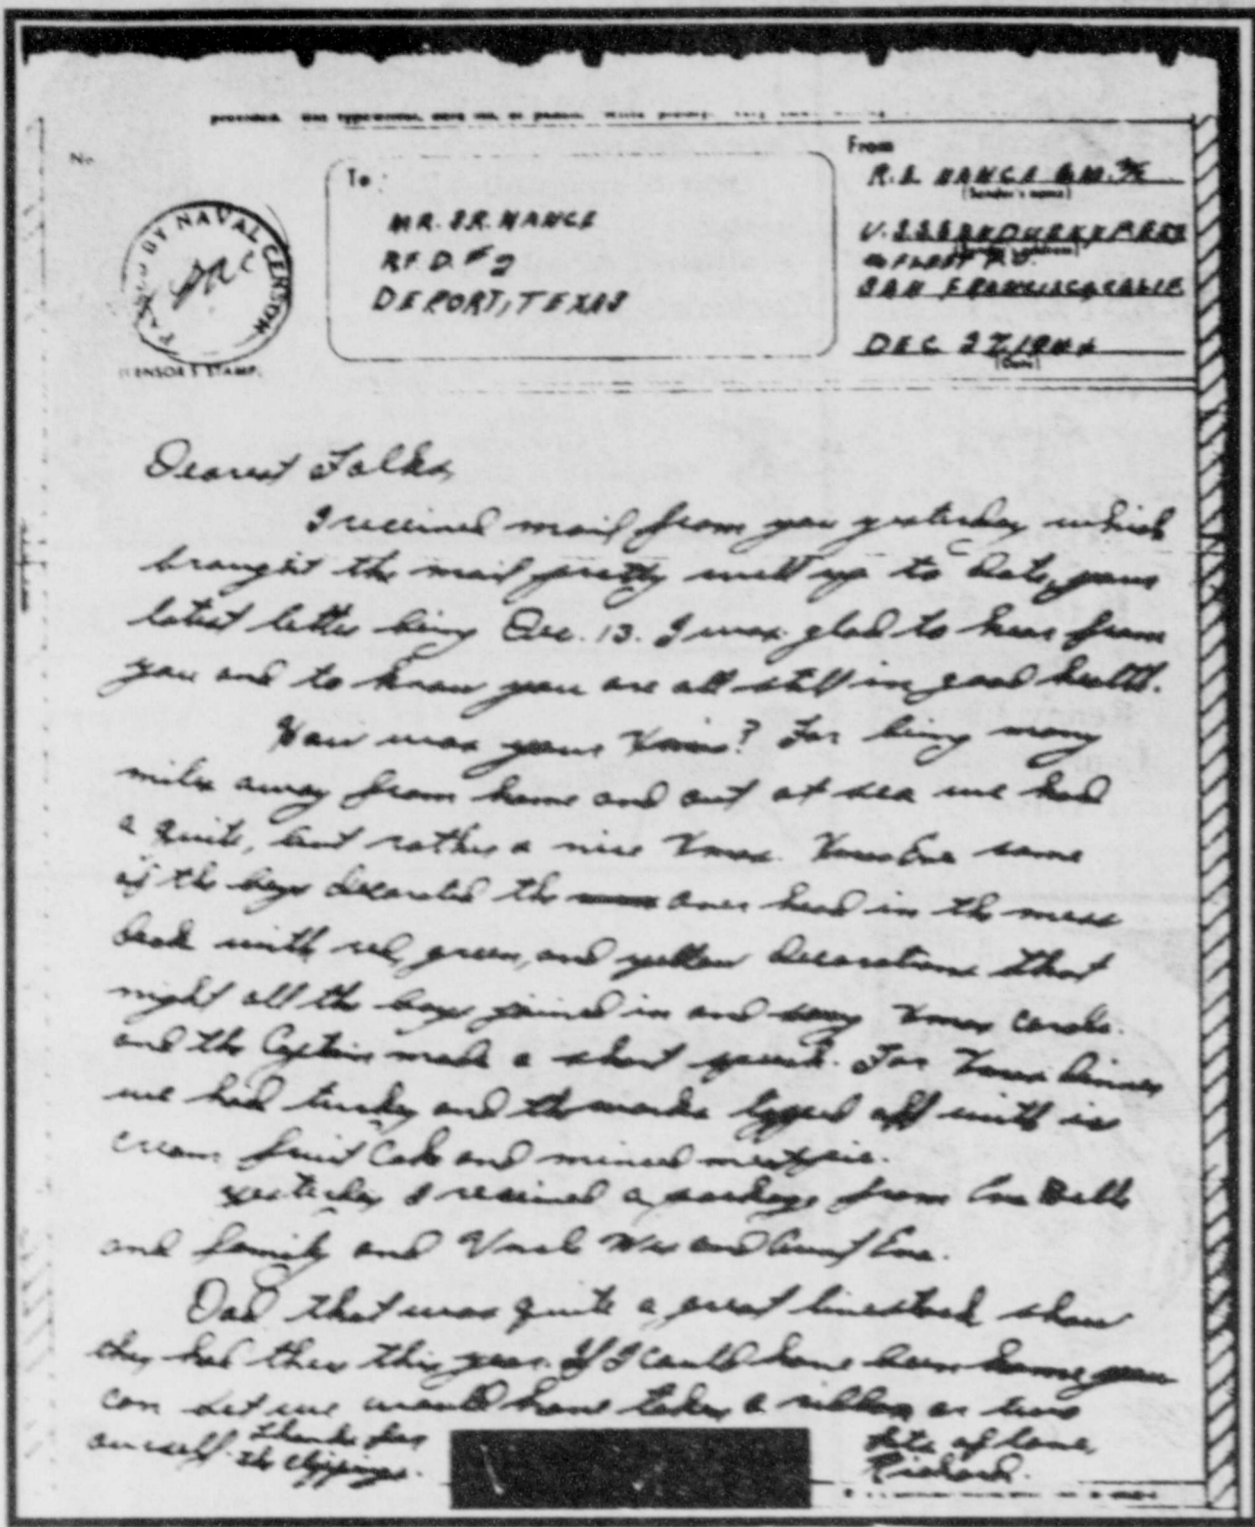 No.
To:
MR. J.R. NANCE
R.F.D. #2
DEPORT, TEXAS
From
R.L. NANCE G.M. 3/c
(Sender's name)
U.S.S.
% FLEET P.O.
SAN FRANCISCO CALIF
DEC 27, 1944
(Date)
PASSED BY NAVAL CENSOR
CENSOR'S STAMP
Dearest Folks,
I received mail from you yesterday which
brought the mail pretty well up to date, your
latest letter being Dec. 13. I was glad to hear from
you and to know you are all still in good health.
How was your Xmas? For being many
miles away from home and out at sea we had
a quite, but rather a nice Xmas. Xmas Eve some
of the boys decorated the over head in the mess
deck with red, green, and yellow decorations that
night all the boys joined in and sang Xmas carols.
and the Captain made a short speech. For Xmas dinner
we had turkey and the works topped off with ice
cream fruit cake and minced meat pie.
Yesterday I received a package from Belle
and family and Uncle Wes and Aunt Eva.
Dad that was quite a great livestock show
they had there this year. If I could have been home you
can bet we would have taken a ribbon or two
ourself. Thanks for
the clippings.
Lots of love,
Richard.